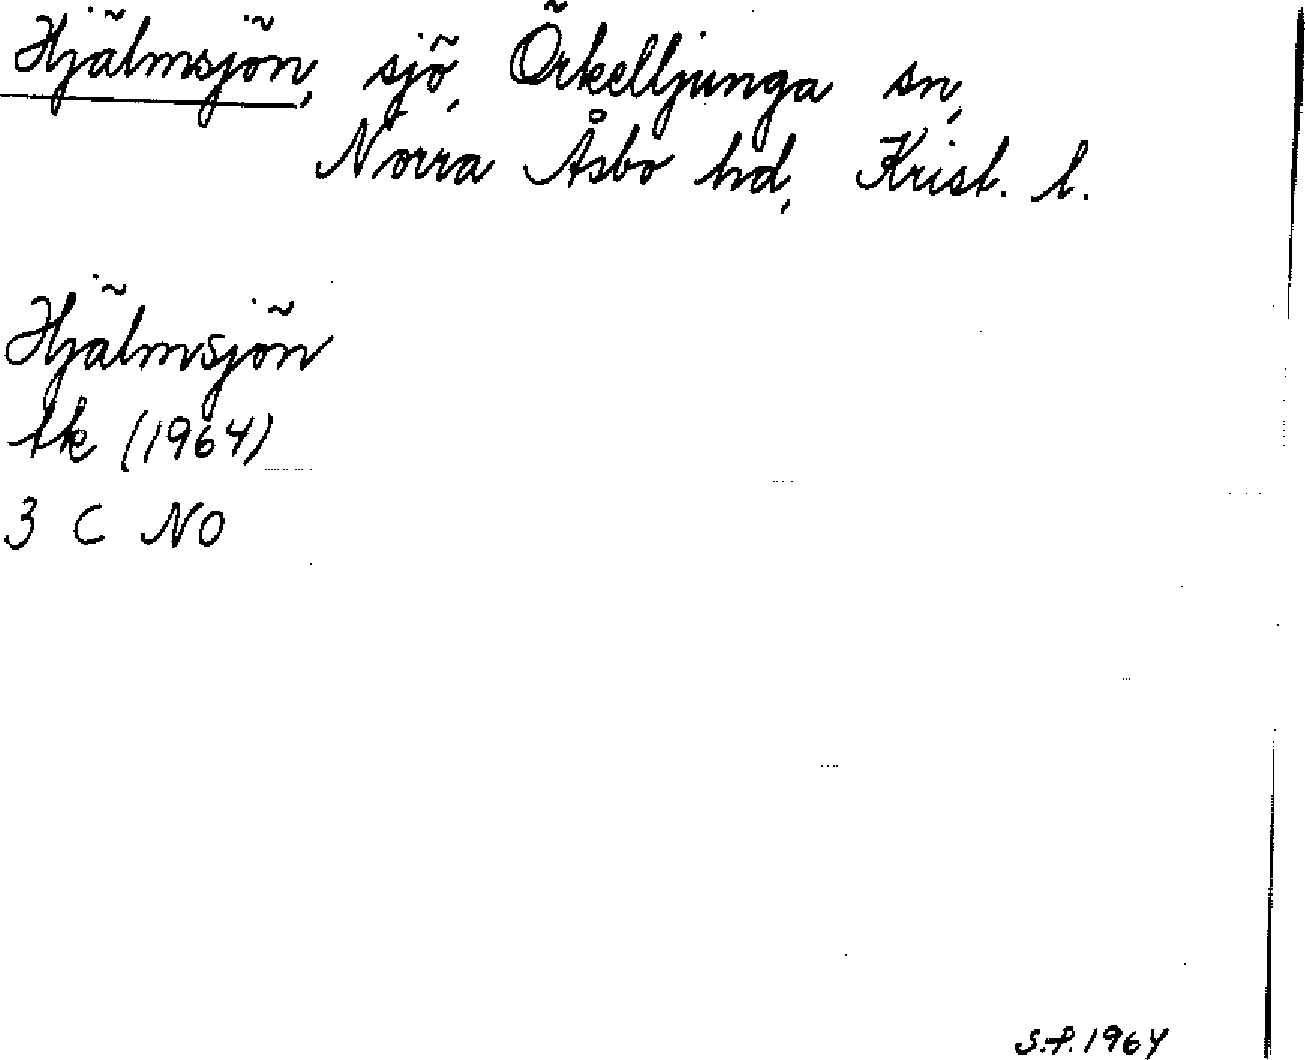 Hjälmsjön, sjö, Örkelljunga sn,
Norra Åsbo hd, Krist. l.
Hjälmsjön
tk (1964)
3 C NO
S.P. 1964